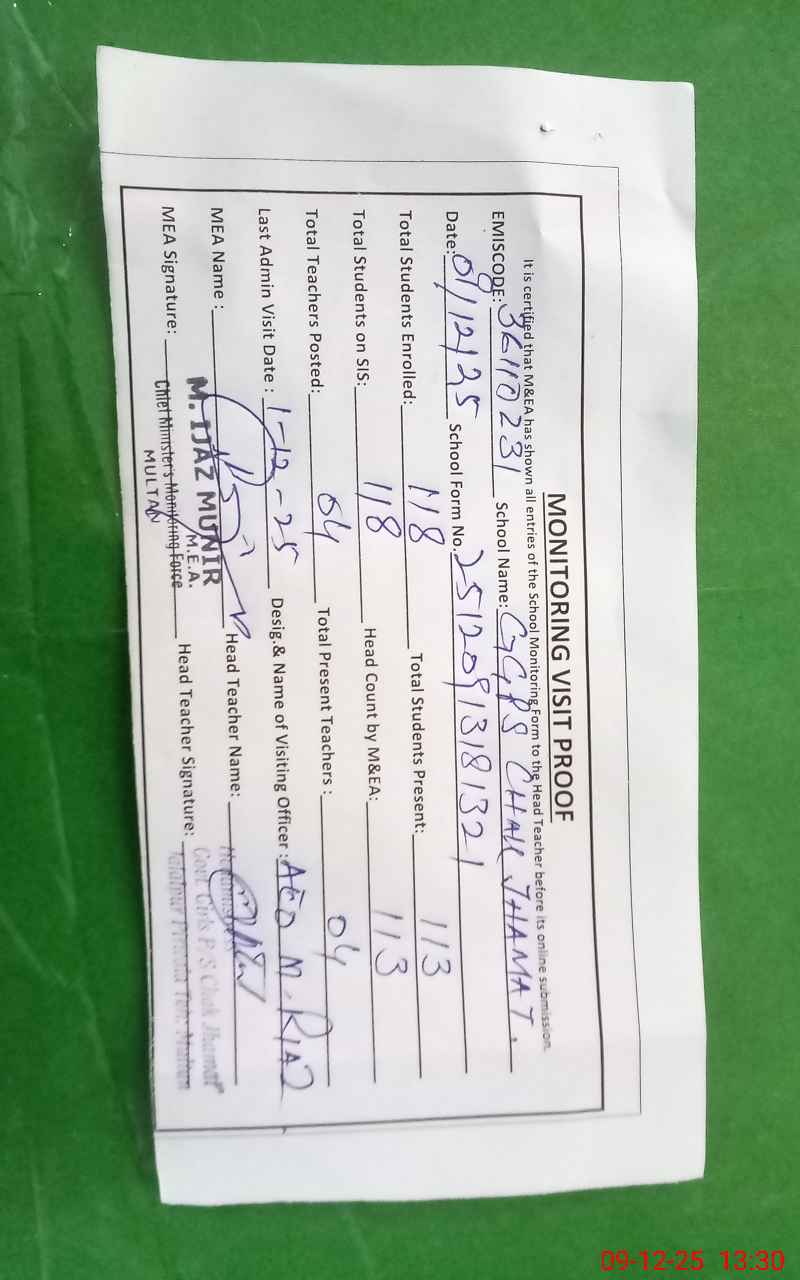 MONITORING VISIT PROOF
It is certified that M&EA has shown all entries of the School Monitoring Form to the Head Teacher before its online submission.
EMISCODE: 36110231 School Name: GGPS CHAK JHAMAT.
Date: 09/12/25 School Form No. 25120913181321
Total Students Enrolled: 118 Total Students Present: 113
Total Students on SIS: 118 Head Count by M&EA: 113
Total Teachers Posted: 04 Total Present Teachers : 04
Last Admin Visit Date : 1-12-25 Desig.& Name of Visiting Officer : AEO M. RIAZ
MEA Name : M. IJAZ MUNIR Head Teacher Name:
M.E.A.
Govt. Girls P/S Chak Jhamat
MEA Signature: Chief Minister's Monitoring Force Head Teacher Signature:
MULTAN
09-12-25 13:30